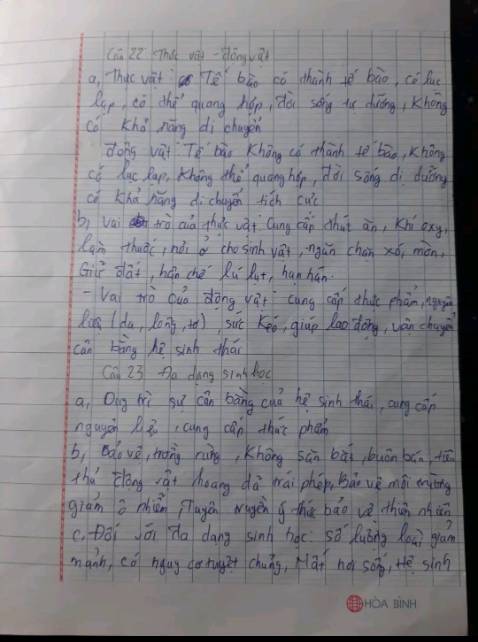 Câu 22 Thực vật - động vật
a, Thực vật Tế bào có thành tế bào, có lục
lạp, có thể quang hợp, đời sống tự dưỡng, không
có khả năng di chuyển
động vật Tế bào không có thành tế bào, không
có lục lạp, không thể quang hợp, đời sống dị dưỡng
có khả năng di chuyển tích cực
b, Vai trò của thực vật cung cấp thức ăn, khí oxy,
làm thuốc, nơi ở cho sinh vật, ngăn chặn xói mòn,
Giữ đất, hạn chế lũ lụt, hạn hán.
- Vai trò của động vật cung cấp thực phẩm, nguyên
liệu (da, lông, tơ), sức kéo, giúp lao động, vận chuyển
cân bằng hệ sinh thái
Câu 23, Đa dạng sinh học
a, Duy trì sự cân bằng của hệ sinh thái, cung cấp
nguyên liệu, cung cấp thức phẩm
b, Bảo vệ, trồng rừng, không săn bắt, buôn bán, tiêu
thụ động vật hoang dã trái phép, Bảo vệ môi trường
giảm ô nhiễm, Tuyên truyền ý thức bảo vệ thiên nhiên
c, Đối với đa dạng sinh học: số lượng loài giảm
mạnh, có nguy cơ tuyệt chủng, Mất nơi sống, Hệ sinh
HÒA BÌNH